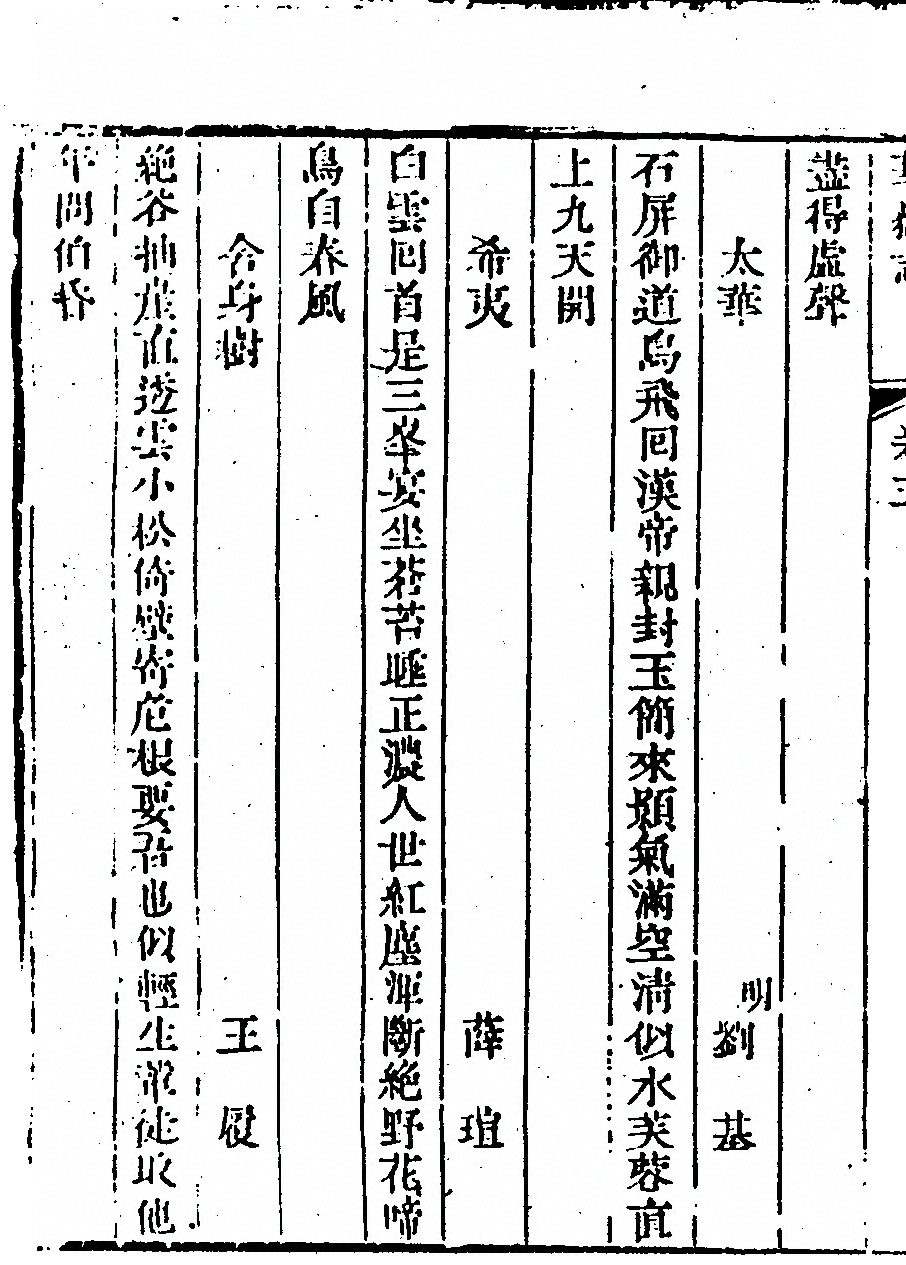 華嶽志 卷三
盡得虛聲
太華 明劉基
石屏御道鳥飛回漢帝親封玉簡來顥氣滿空清似水芙蓉直
上九天開
希夷 薛瑄
白雲回首是三峯宴坐蒼苔睡正濃人世紅塵渾斷絕野花啼
鳥自春風
舍身樹 王履
絶谷抽崖直透雲小松倚壁寄危根要君也似輕生輩徒取他
年問伯昏